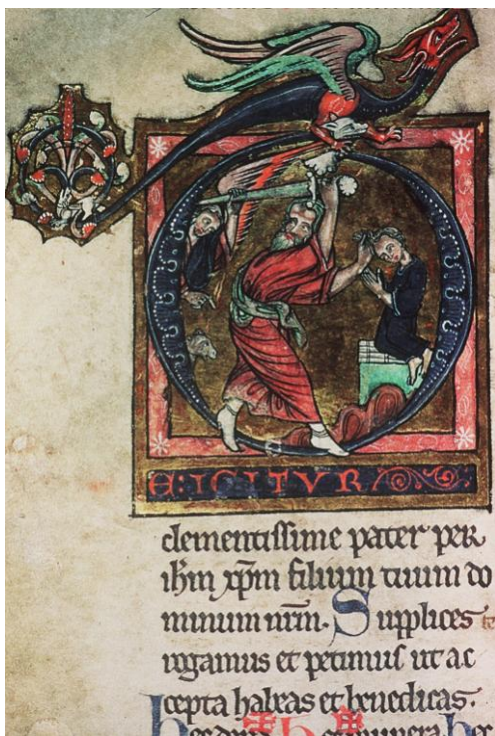 E: IGITVR
clementissime pater per
ihm xpm filium tuum do
minum nrm. Supplices te
rogamus et petimus ut ac
cepta habeas et benedicas.
hec